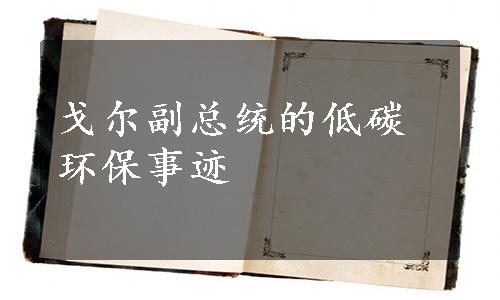 戈尔副总统的低碳
环保事迹